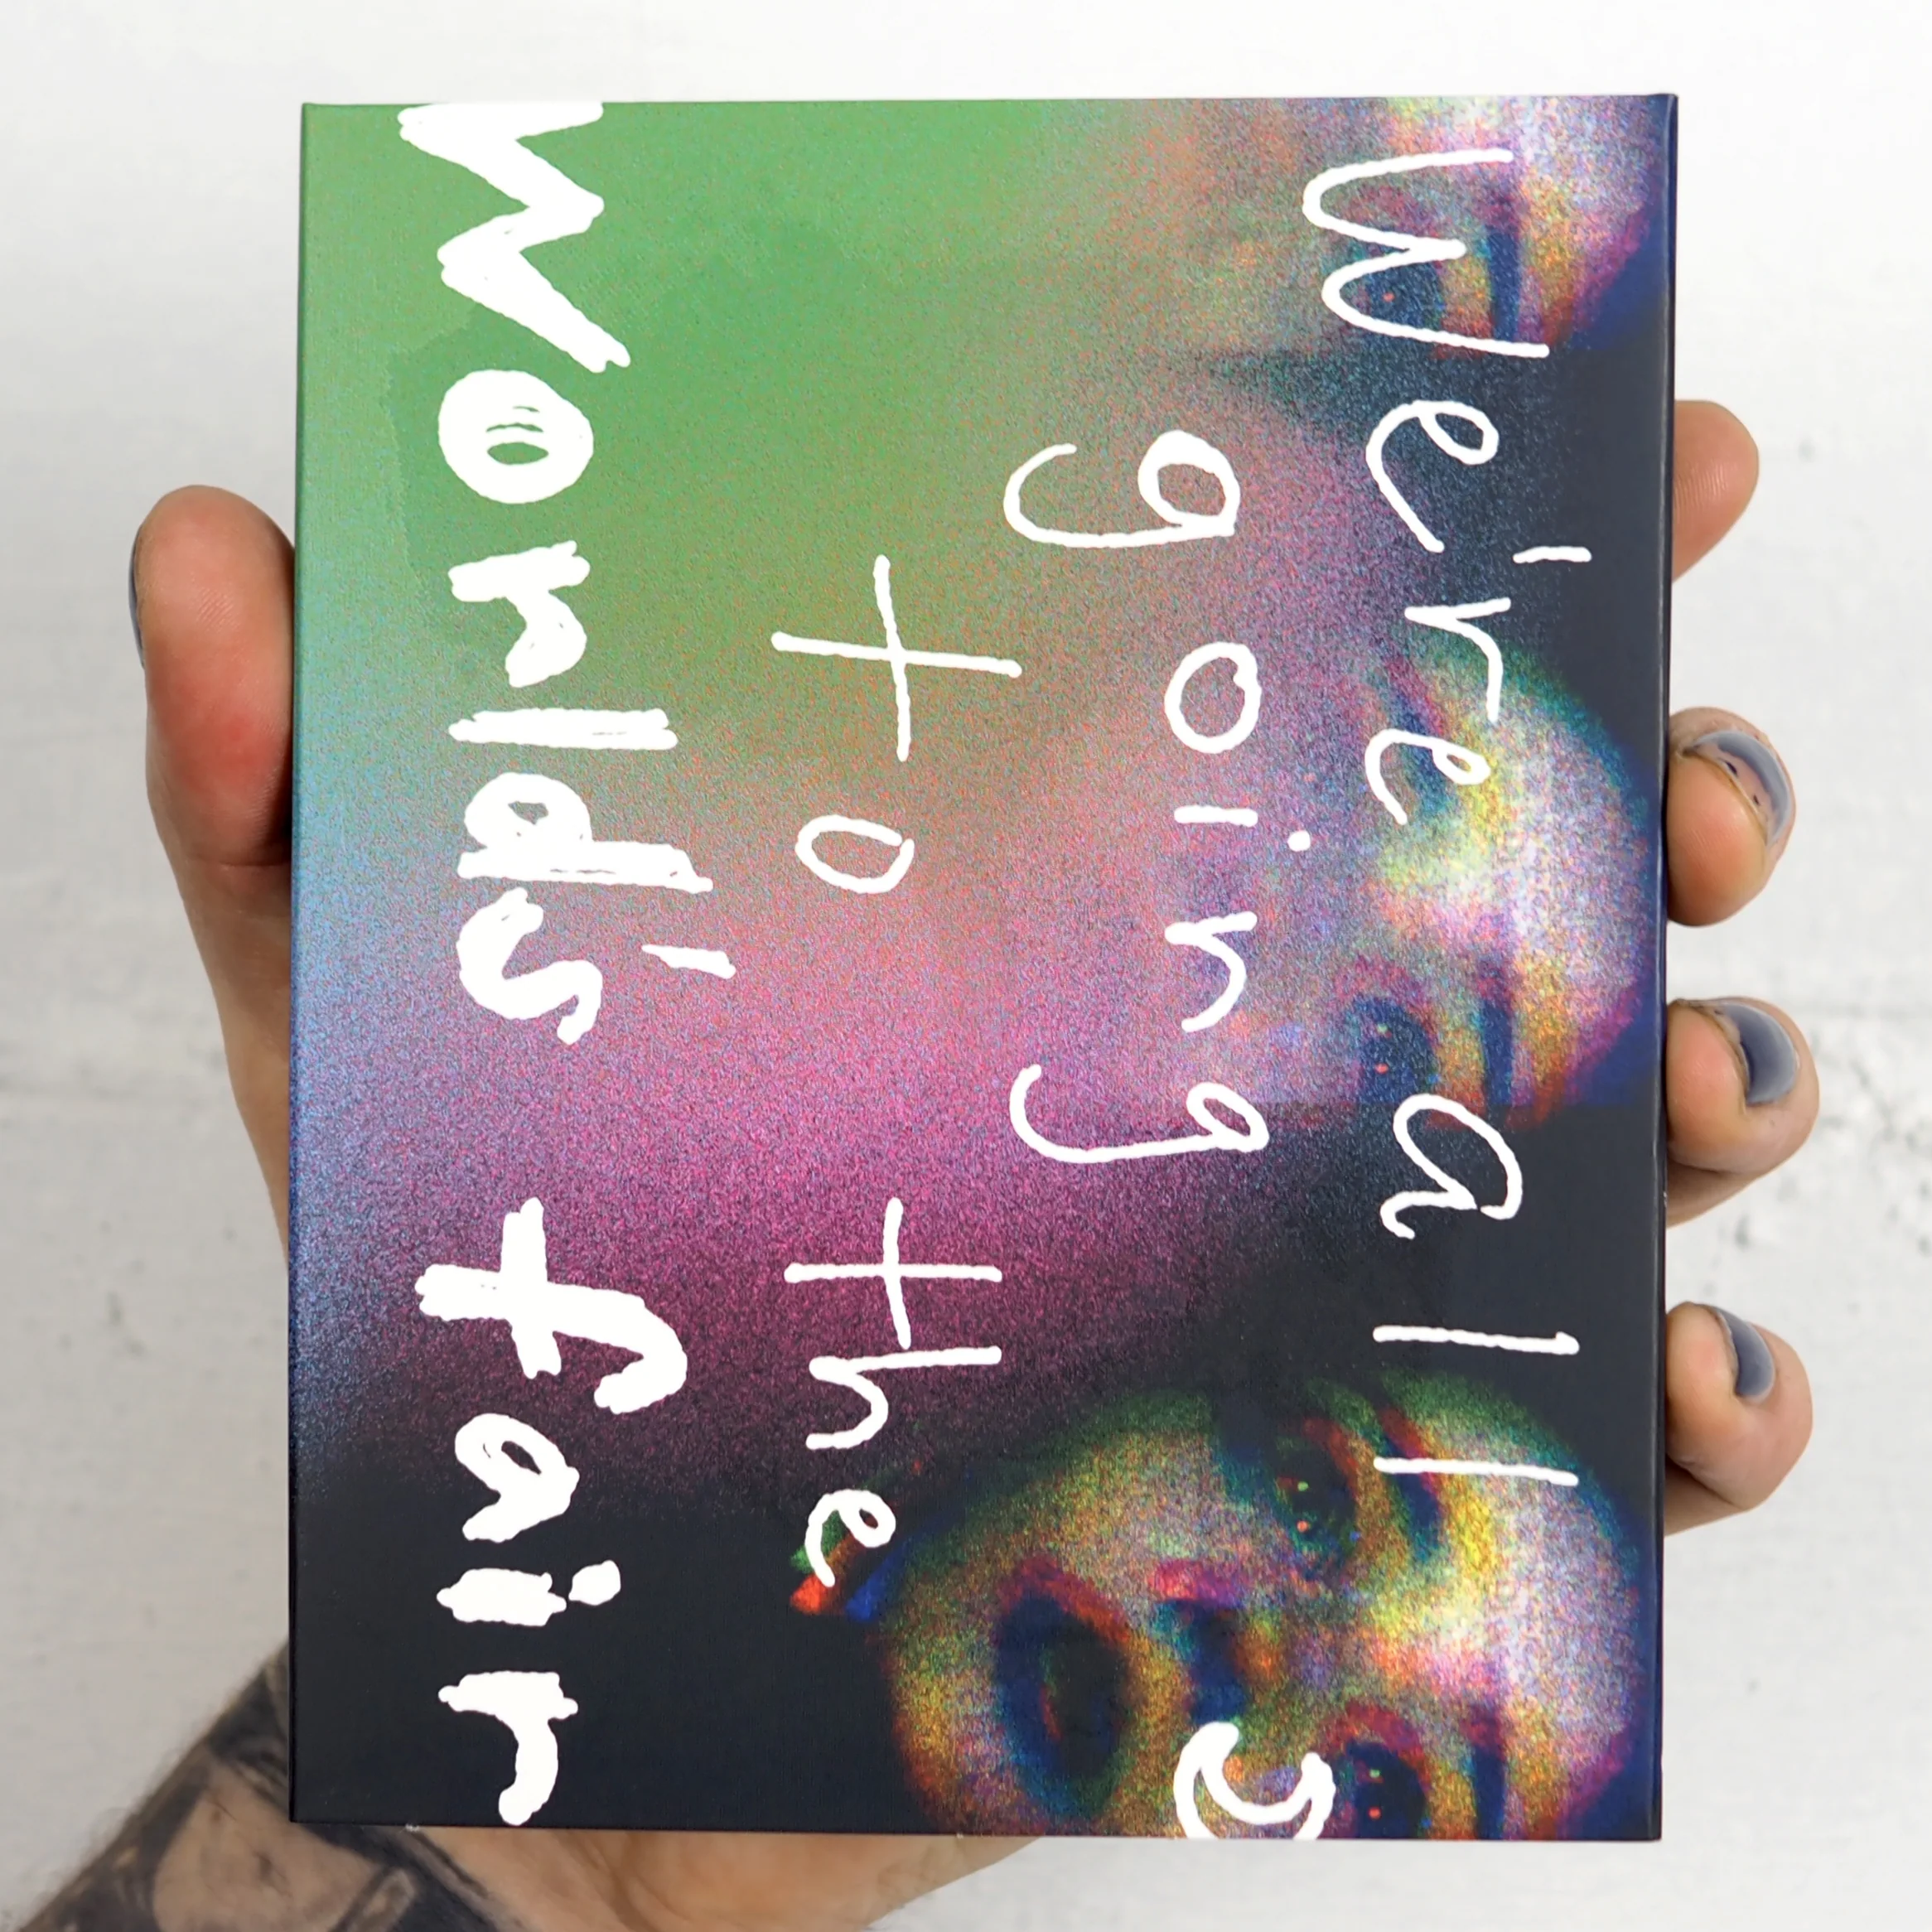 We're all
going
to the
World's fair